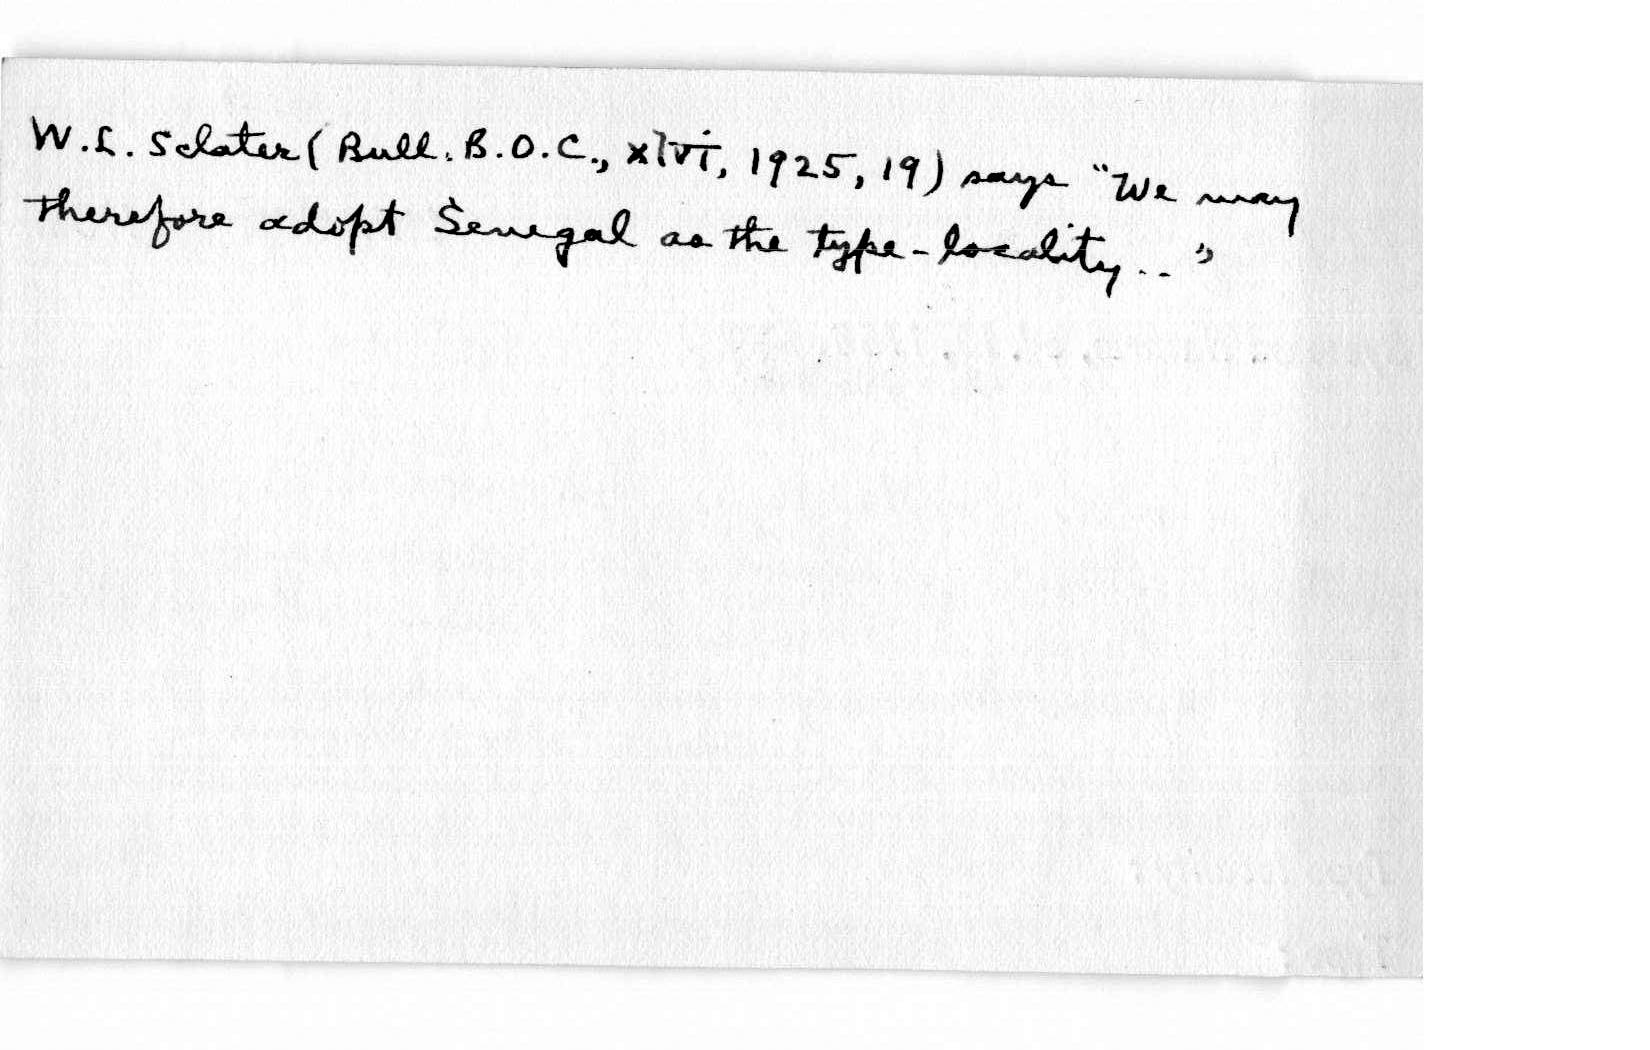 W.L. Sclater (Bull. B.O.C., xlvi, 1925, 19) says "We may
therefore adopt Senegal as the type-locality.."